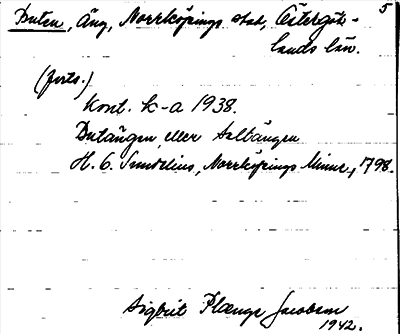 5
Buten, Äng, Norrköpings stad, Östergöt-
lands län.
(forts.)
Kont. k-a 1938.
Butängen eller Saltängen
H. O. Sundelius, Norrköpings Minne, 1798.
Sigbrit Plænge Jacobson
1942.